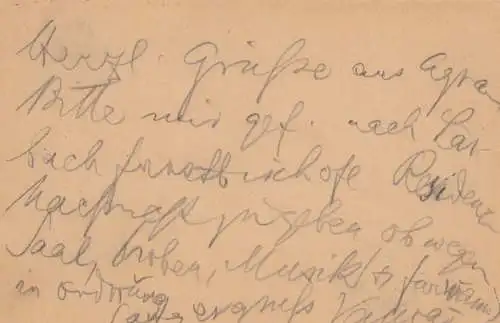 Herzl. Grüße aus Agram
Bitte mir gef. nach Lai-
bach fürstbischofl. Residenz
Nachricht zu geben ob wegen
Saal, Proben, Musik
in Ordnung